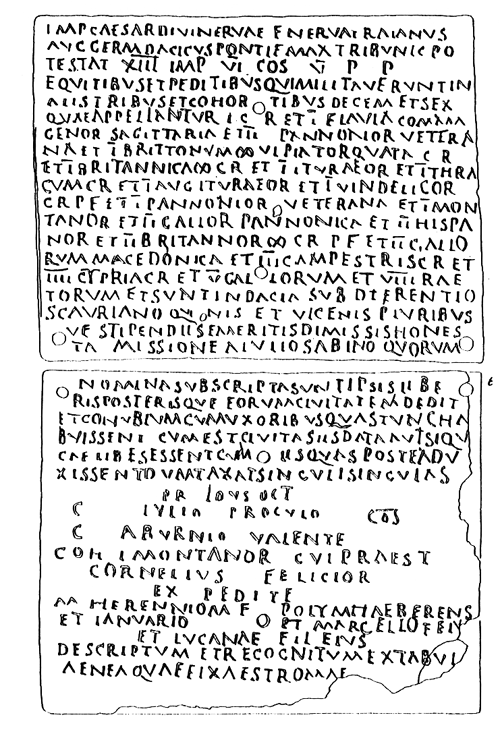 IMP CAESAR DIVI NERVAE F NERVA TRAIANVS
AVG GERM DACICVS PONTIF MAX TRIBVNIC PO
TESTAT XIII IMP VI COS V P P
EQVITIBVS ET PEDITIBVS QVI MILITAVERVNT IN
ALIS TRIBVS ET COHORTIBVS DECEM ET SEX
QVAE APPELLANTVR I C R ET I FLAVIA COMMA
GENOR SAGITTARIA ET II PANNONIOR VETERA
NA ET I BRITTONVM ∞ VLPIA TORQVATA C R
ET I BRITANNICA ∞ C R ET I ITVRAEOR ET I THRA
CVM C R ET I AVG ITVRAEOR ET I VINDELICOR
C R P F ET I PANNONIOR VETERANA ET I MON
TANOR ET II GALLOR PANNONICA ET II HISPA
NOR ET II BRITANNOR ∞ C R P F ET II GALLO
RVM MACEDONICA ET III CAMPESTRIS C R ET
IIII CYPRIA C R ET V GALLORVM ET VIII RAE
TORVM ET SVNT IN DACIA SVB D TERENTIO
SCAVRIANO QVINIS ET VICENIS PLVRIBVS
VE STIPENDIIS EMERITIS DIMISSIS HONES
TA MISSIONE A IVLIO SABINO QVORVM
NOMINA SVBSCRIPTA SVNT IPSIS LIBE
RIS POSTERISQVE EORVM CIVITATEM DEDIT
ET CONVBIVM CVM VXORIBVS QVAS TVNC HA
BVISSENT CVM EST CIVITAS IIS DATA AVT SIQV
CAELIBES ESSENT CVM IIS QVAS POSTEA DV
XISSENT DVMTAXAT SINGVLI SINGVLAS
PR IDVS OCT
C IVLIO PROCVLO COS
C ABVRNIO VALENTE
COH I MONTANOR CVI PRAEST
CORNELIVS FELICIOR
EX PEDITE
M HERENNIO M F POLYMITAE BERENS
ET IANVARIO F EIVS ET MARCELLO F EIVS
ET LVCANAE FIL EIVS
DESCRIPTVM ET RECOGNITVM EX TABVL
AENEA QVAE FIXA EST ROMAE